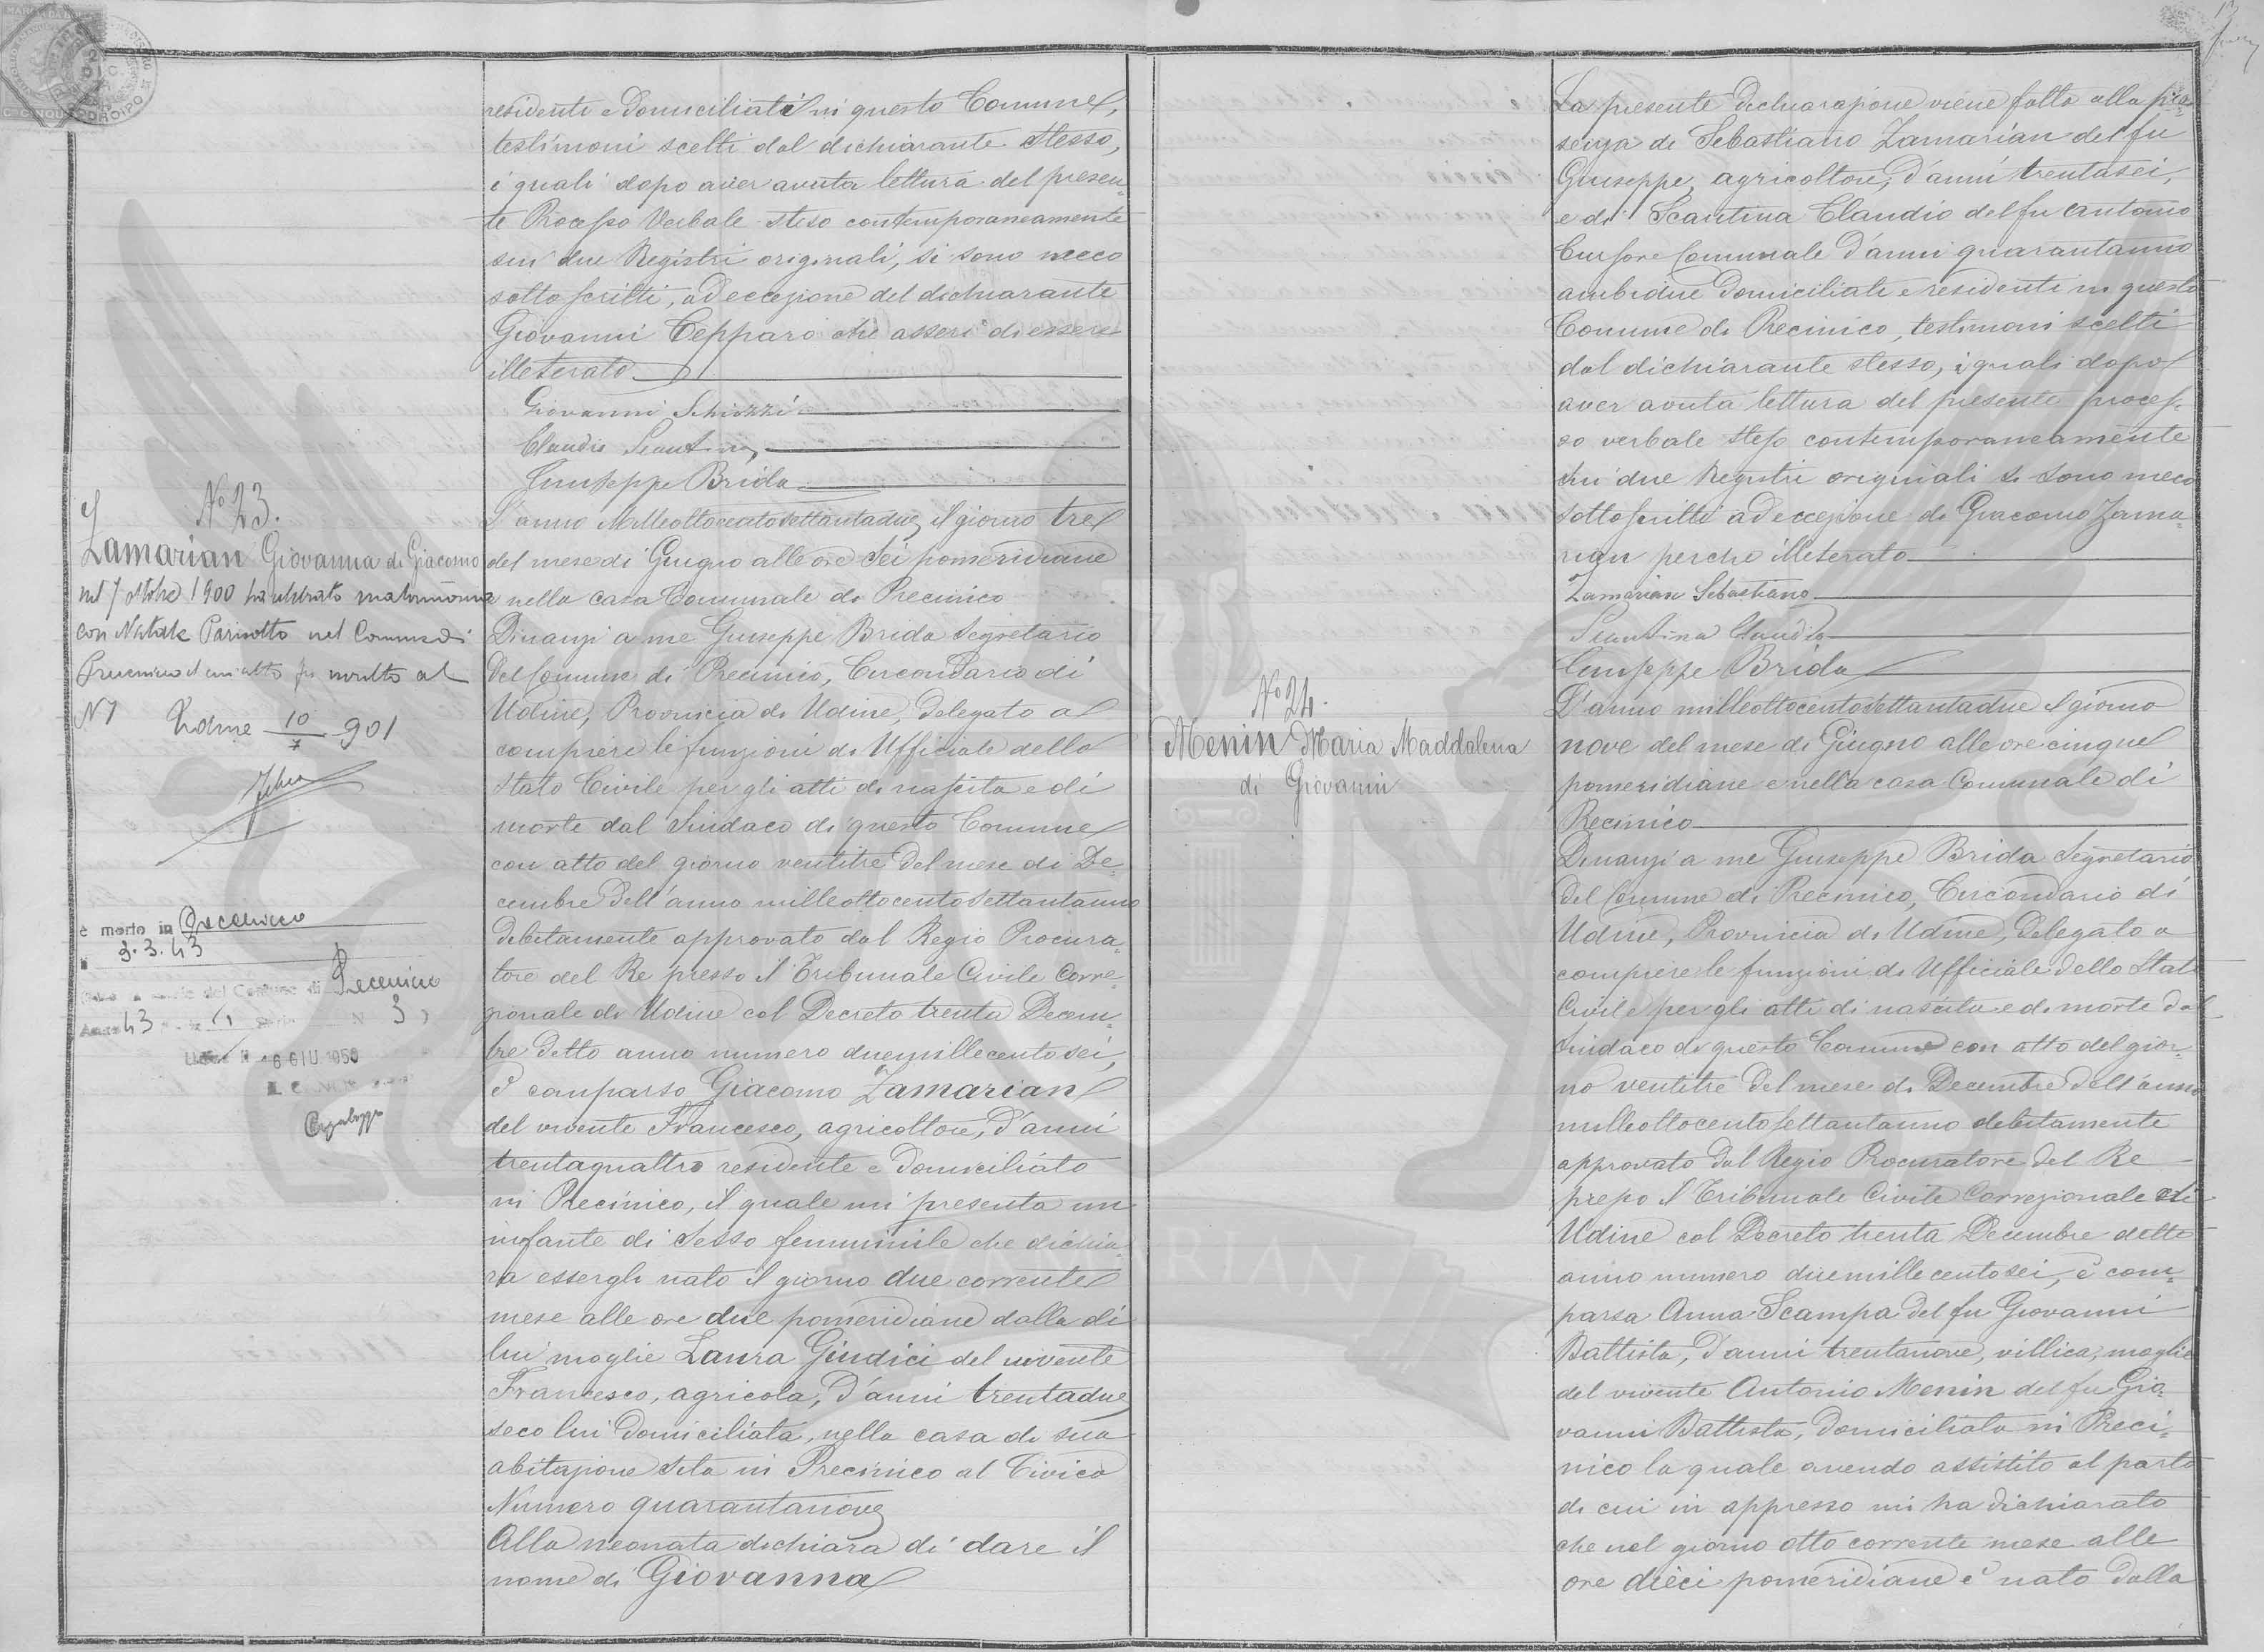 residenti e domiciliati in questo Comune,
testimoni scelti dal dichiarante stesso,
i quali dopo aver avuta lettura del presen-
te Processo Verbale steso contemporaneamente
sui due Registri originali, si sono meco
sottoscritti, ad eccezione del dichiarante
Giovanni Tepparo che asserì di essere
illeterato
Giovanni Schizzi
Claudio Scantina
Giuseppe Brida
No 23.
Zamarian Giovanna di Giacomo
nel 7 1900 ha celebrato matrimonio
con Natale Parinotto nel Comune di
Precenico al
N 7
Udine 10/7 901
è morto in Precenico
il 3.3.43
del Comune di Precenico
Anno 43 N 3
6 GIU 1950
L'anno Milleottocentosettantadue, il giorno tre
del mese di Giugno alle ore sei pomeridiane
e nella casa Comunale di Precinico
Dinanzi a me Giuseppe Brida Segretario
del Comune di Precinico, Circondario di
Udine, Provincia di Udine, delegato a
compiere le funzioni di Ufficiale dello
Stato Civile per gli atti di nascita e di
morte dal Sindaco di questo Comune
con atto del giorno ventitre del mese di De-
cembre dell'anno milleottocentosettantauno
debitamente approvato dal Regio Procura-
tore del Re presso il Tribunale Civile Corre-
zionale di Udine col Decreto trenta Decem-
bre detto anno numero duemillecentosei,
è comparso Giacomo Zamarian
del vivente Francesco, agricoltore, d'anni
trentaquattro residente e domiciliato
in Precinico, il quale mi presenta un
infante di sesso femminile che dichia-
ra essergli nato il giorno due corrente
mese alle ore due pomeridiane dalla di
lui moglie Laura Giudici del vivente
Francesco, agricola, d'anni trentadue
seco lui domiciliata, nella casa di sua
abitazione sita in Precinico al Civico
Numero quarantanove
Alla neonata dichiara di dare il
nome di Giovanna
La presente dichiarazione viene fatta alla pre-
senza di Sebastiano Zamarian del fu
Giuseppe, agricoltore, d'anni trentasei,
e di Scantina Claudio del fu Antonio
Cursore Comunale d'anni quarantauno
ambidue domiciliati e residenti in questo
Comune di Precinico, testimoni scelti
dal dichiarante stesso, i quali dopo
aver avuta lettura del presente proces-
so verbale steso contemporaneamente
sui due Registri originali si sono meco
sottoscritti ad eccezione di Giacomo Zama-
rian perche illeterato
Zamarian Sebastiano
Scantina Claudio
Giuseppe Brida
No 24.
Menin Maria Maddalena
di Giovanni
L'anno milleottocentosettantadue il giorno
nove del mese di Giugno alle ore cinque
pomeridiane e nella casa Comunale di
Precinico
Dinanzi a me Giuseppe Brida Segretario
del Comune di Precinico, Circondario di
Udine, Provincia di Udine, delegato a
compiere le funzioni di Ufficiale dello Stato
Civile per gli atti di nascita e di morte dal
Sindaco di questo Comune con atto del gior-
no ventitre del mese di Decembre dell'anno
milleottocentosettantauno debitamente
approvato dal Regio Procuratore del Re
presso il Tribunale Civile Correzionale di
Udine col Decreto trenta Decembre detto
anno numero duemillecentosei, è com-
parsa Anna Scampa del fu Giovanni
Battista, d'anni trentanove, villica, moglie
del vivente Antonio Menin del fu Gio-
vanni Battista, domiciliata in Preci-
nico la quale avendo assistito al parto
di cui in appresso mi ha dichiarato
che nel giorno otto corrente mese alle
ore dieci pomeridiane è nato dalla